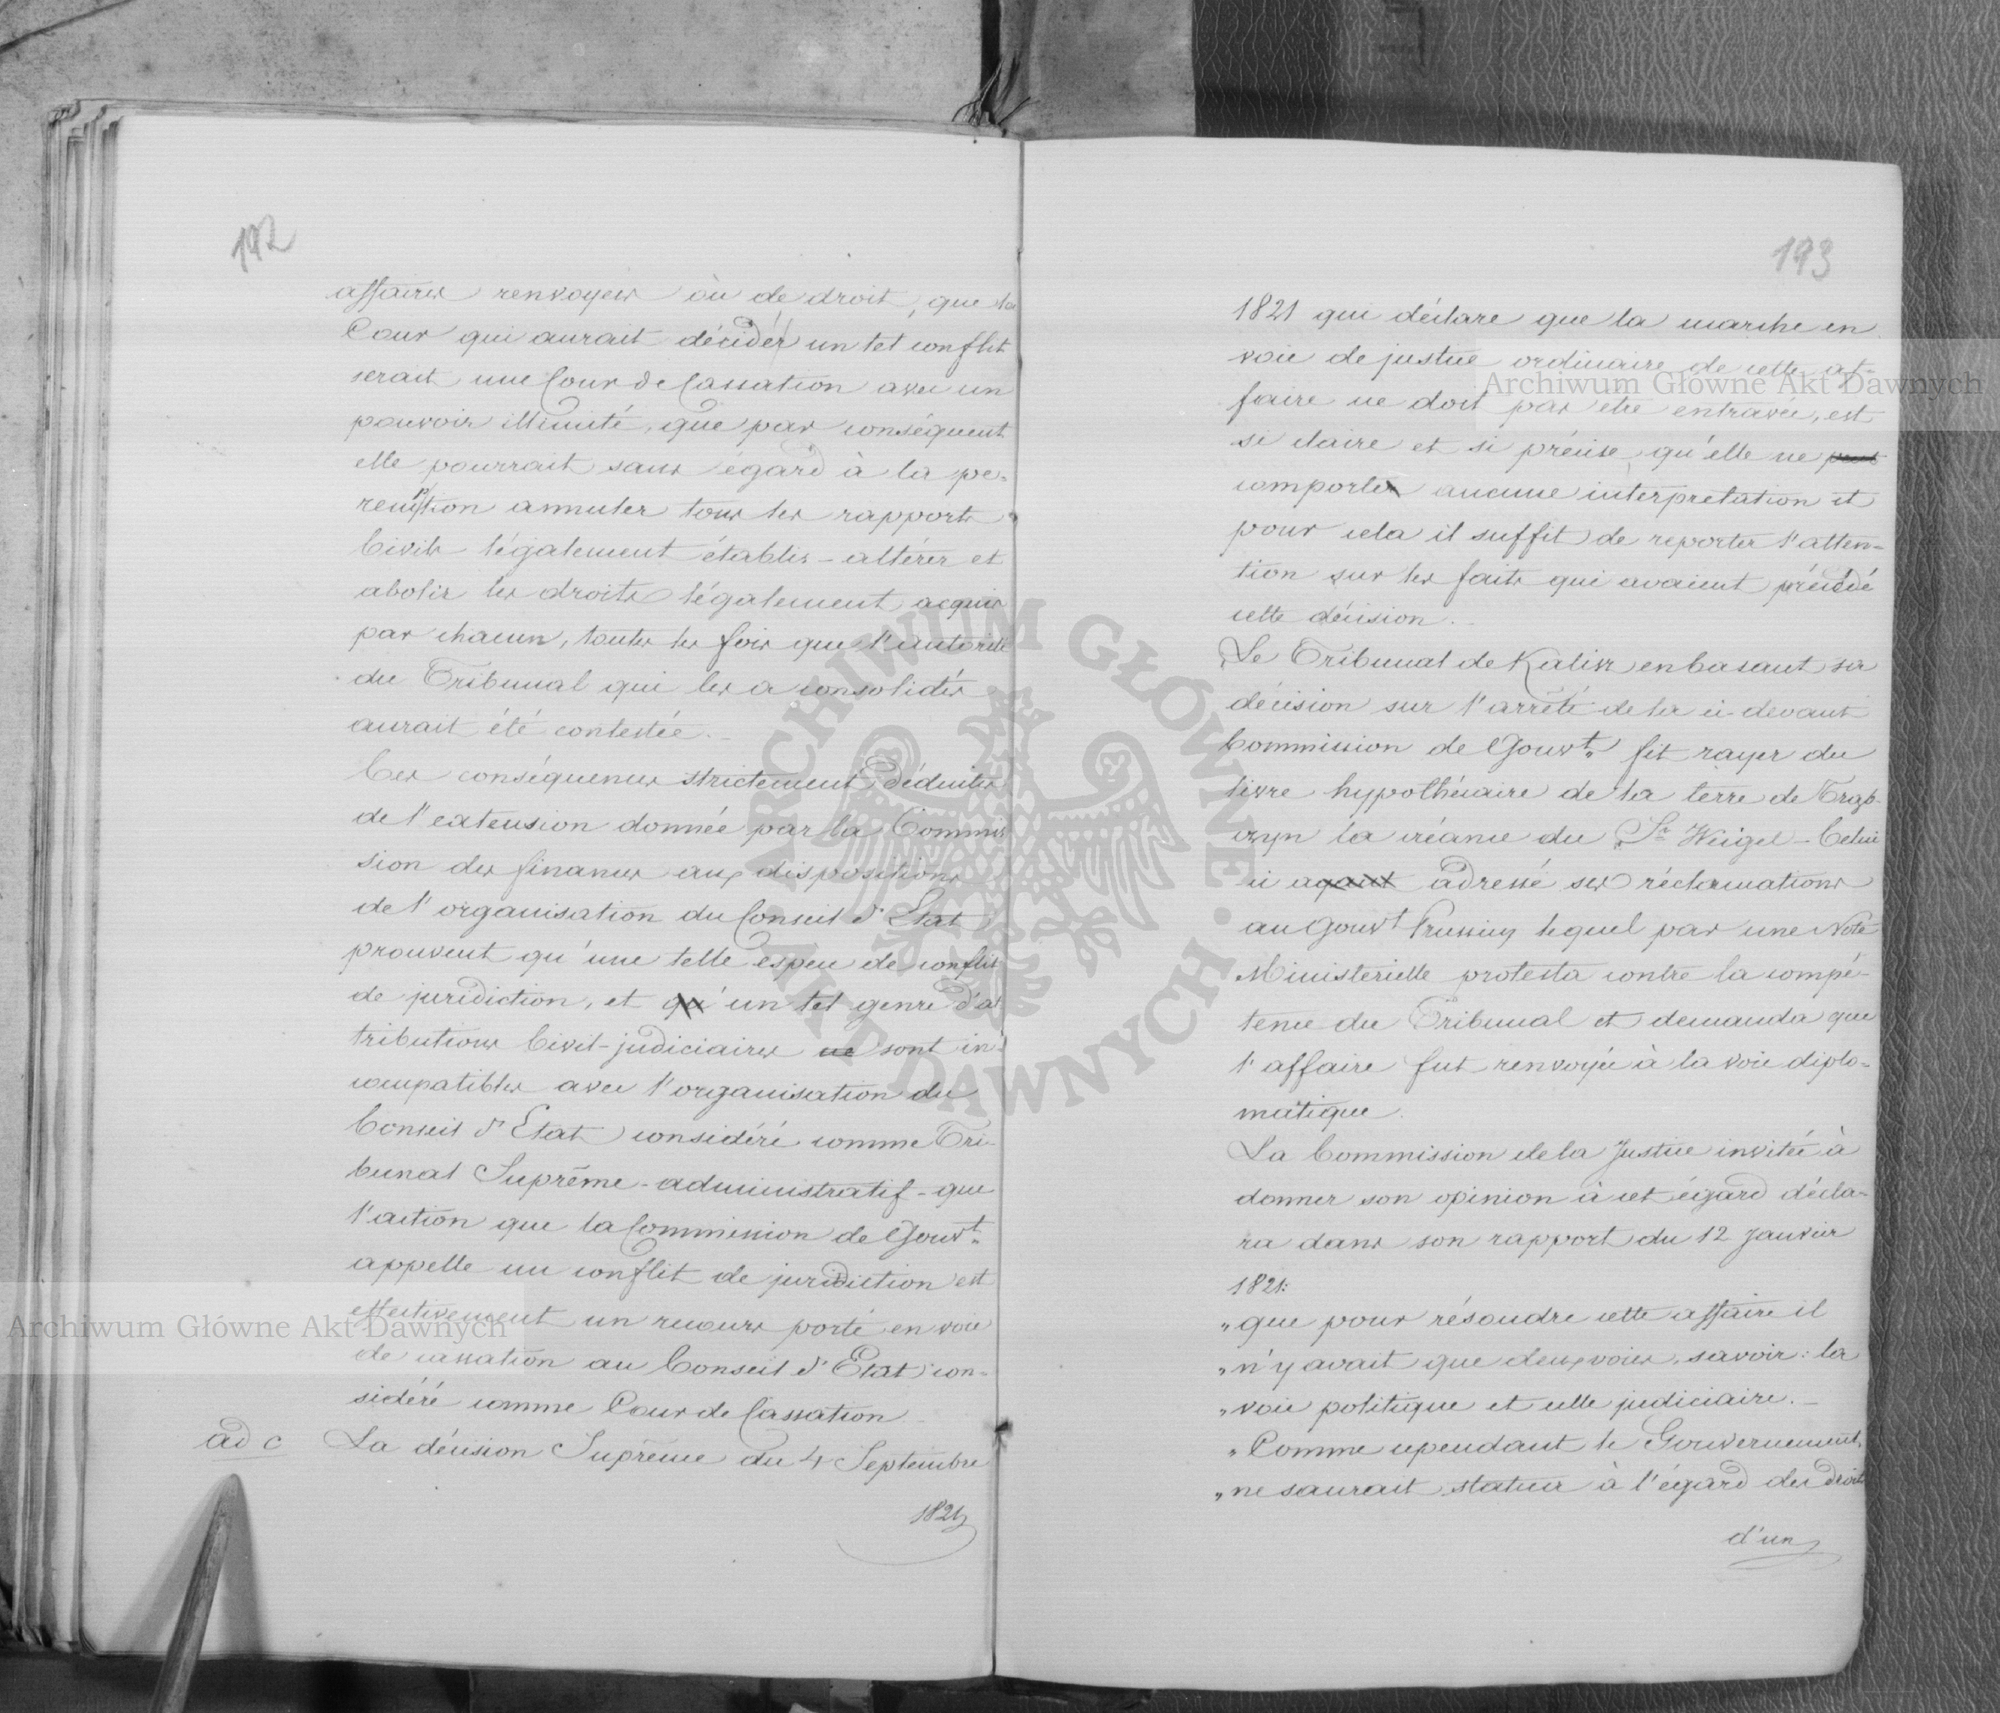 192
affaires renvoyées où de droit, que la
Cour qui aurait décidér un tel conflit
serait une Cour de Cassation avec un
pouvoir illimité, que par conséquent
elle pourrait sans égard à la pe-
remption annuler tous les rapports
Civils légalement établis - altérer et
abolir les droits légalement acquis
par chacun, toutes les fois que l'autorité
du Tribunal qui les a consolidés
aurait été contestée. -
Ces conséquences strictement déduites
de l'extension donnée par la Commis
sion des finances aux dispositions
de l'organisation du Conseil d'Etat
prouvent qu'une telle espece de conflit
de juridiction, et qu'un tel genre d'at
tributions Civil-judiciaires ne sont in-
compatibles avec l'organisation du
Conseil d'Etat considéré comme Tri-
bunal Suprême - administratif - que
l'action que la Commission de Gouvt.
appelle un conflit de juridiction est
effectivement un recours porté en voie
de cassation au Conseil d'Etat con-
sidéré comme Cour de Cassation
ad c La décision Suprême du 4 Septembre
1821
193
1821 qui déclare que la marche en
voie de justice ordinaire de cette af-
faire ne doit pas etre entravée, est
si claire et si précise, qu'elle ne peut
comporter aucune interpretation et
pour cela il suffit de reporter l'atten-
tion sur les faits qui avaient précédé
cette décision. -
Le Tribunal de Kalisz en basant sa
décision sur l'arrêté de la ci-devant
Commission de Gouvt. fit rayer du
livre hypothécaire de la terre de Trap-
czyn la créance du Sr Weigel - Celui
ci ayant adressé ses réclamations
au Gouvt Prussien lequel par une Note
Ministerielle protesta contre la compé-
tence du Tribunal et demanda que
l'affaire fut renvoyée à la voie diplo-
matique.
La Commission de la Justice invitée à
donner son opinion à cet égard décla-
ra dans son rapport du 12 Janvier
1821:
"que pour résoudre cette affaire il
"n'y avait que deux voies, savoir: la
"voie politique et celle judiciaire. -
"Comme cependant le Gouvernement,
"ne saurait statuer à l'égard des droits
d'un
Archiwum Główne Akt Dawnych
Archiwum Główne Akt Dawnych
ARCHIWUM GŁÓWNE AKT DAWNYCH